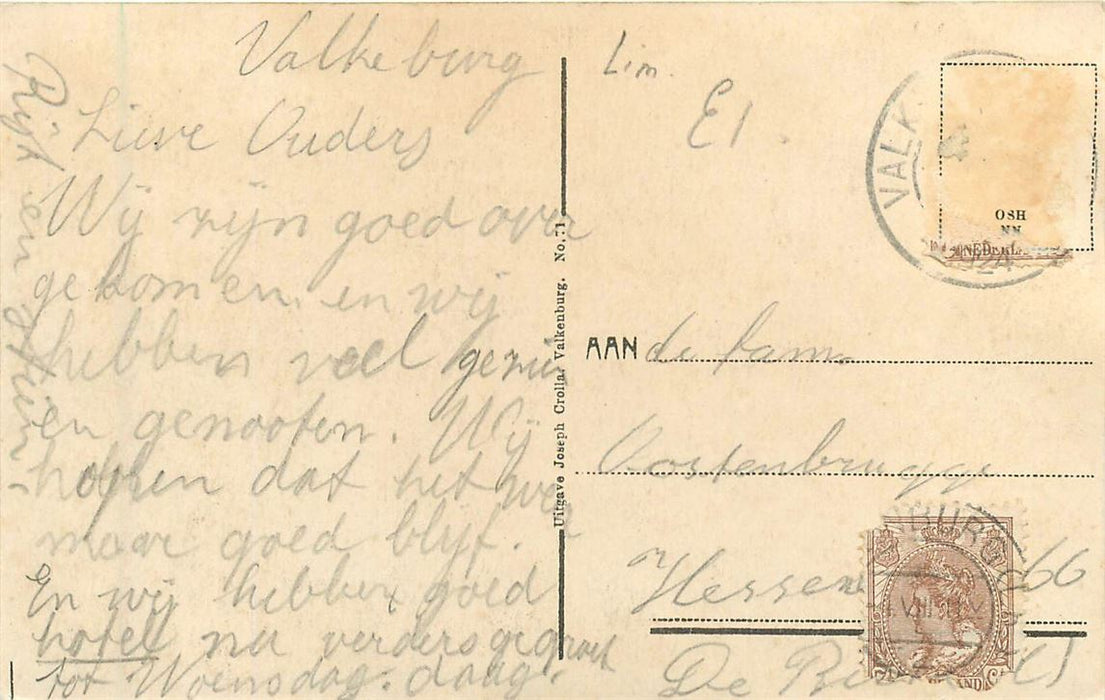 Valkeburg
Lieve Ouders
Wij zijn goed over
gekomen en wij
hebben veel gezien
en genooten. Wij
hoppen dat het weer
maar goed blijf.
En wij hebben goed
hotel nu verders gegroet
tot Woensdag. daag.
Rijk en
Uitgave Joseph Crolla, Valkenburg. No. 71
Lim.
E1.
VALK
OSH
NN
NEDERL
AAN de fam.
Oostenbrugge
Hessen 66
De
BURG